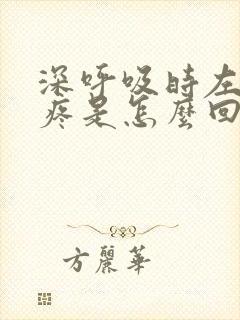 深呼吸時左
疼是怎麼回
方麗華